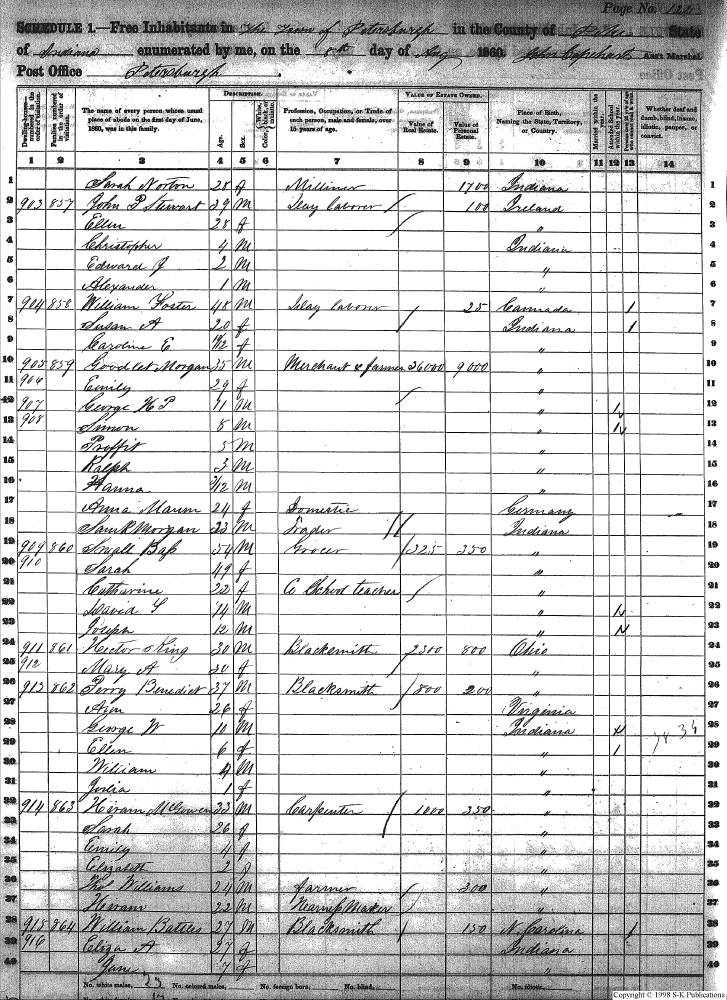 Page No. 124
SCHEDULE 1.—Free Inhabitants in The Town of Petersburgh in the County of Pike State
of Indiana enumerated by me, on the day of Aug 1860. Ass't Marshal.
Post Office Petersburgh
Dwelling-houses numbered in the order of visitation. Families numbered in the order of visitation. The name of every person whose usual place of abode on the first day of June, 1860, was in this family. DESCRIPTION. Age. Sex. Profession, Occupation, or Trade of each person, male and female, over 15 years of age. VALUE OF ESTATE OWNED. Value of Real Estate. Value of Personal Estate. Place of Birth, Naming the State, Territory, or Country. Married within the year. Attended School within the year. Whether deaf and dumb, blind, insane, idiotic, pauper, or convict.
1 2 3 4 5 6 7 8 9 10 11 12 13 14
1 Sarah Norton 28 f Milliner 1700 Indiana 1
2 903 857 John P Stewart 29 M Day laborer 100 Ireland 2
3 Ellen 28 f " 3
4 Christopher 4 M Indiana 4
5 Edward J 2 M " 5
6 Alexander 1 M " 6
7 904 858 William Foster 48 M Day laborer 25 Cannada 1 7
8 Susan A 20 f Indiana 1 8
9 Caroline E f " 9
10 905 859 Goodlet Morgan 35 M Merchant & farmer 26000 9000 " 10
11 906 Emily 29 f " 11
12 907 George H P 11 M " 12
13 908 Simon 8 M " 13
14 Proffit 5 M " 14
15 Ralph 3 M " 15
16 Hanna /12 M " 16
17 Anna 24 f Domestic Germany 17
18 Saml R Morgan 23 M Trader Indiana 18
19 909 860 Small 54 M Grocer 1325 350 " 19
20 910 Sarah 49 f " 20
21 Catharine 22 f A School teacher " 21
22 David S 14 M " 22
23 Joseph 12 M " 23
24 911 861 Hector King 30 M Blacksmith 2300 800 Ohio 24
25 912 Mary A 30 f " 25
26 913 862 Perry Benedict 37 M Blacksmith 800 200 " 26
27 Ann 26 f Virginia 27
28 George W 10 M Indiana 28
29 Ellen 6 f " 1 29
30 William 4 M " 30
31 Julia 1 f " 31
32 914 863 Hiram McGowen 33 M Carpenter 1000 350 " 32
33 Sarah 26 f " 33
34 Emily 4 f " 34
35 Elizabeth 2 f " 35
36 Thos Williams 24 M farmer 300 " 36
37 Hiram 22 M Harness Maker " 37
38 915 864 William Battles 27 M Blacksmith 150 N. Carolina 1 38
39 916 Eliza A 27 f Indiana 39
40 Jane 7 f " 40
No. white males, 23 No. colored males, No. foreign born, No. blind, No. idiotic,
Copyright © 1998 S-K Publications